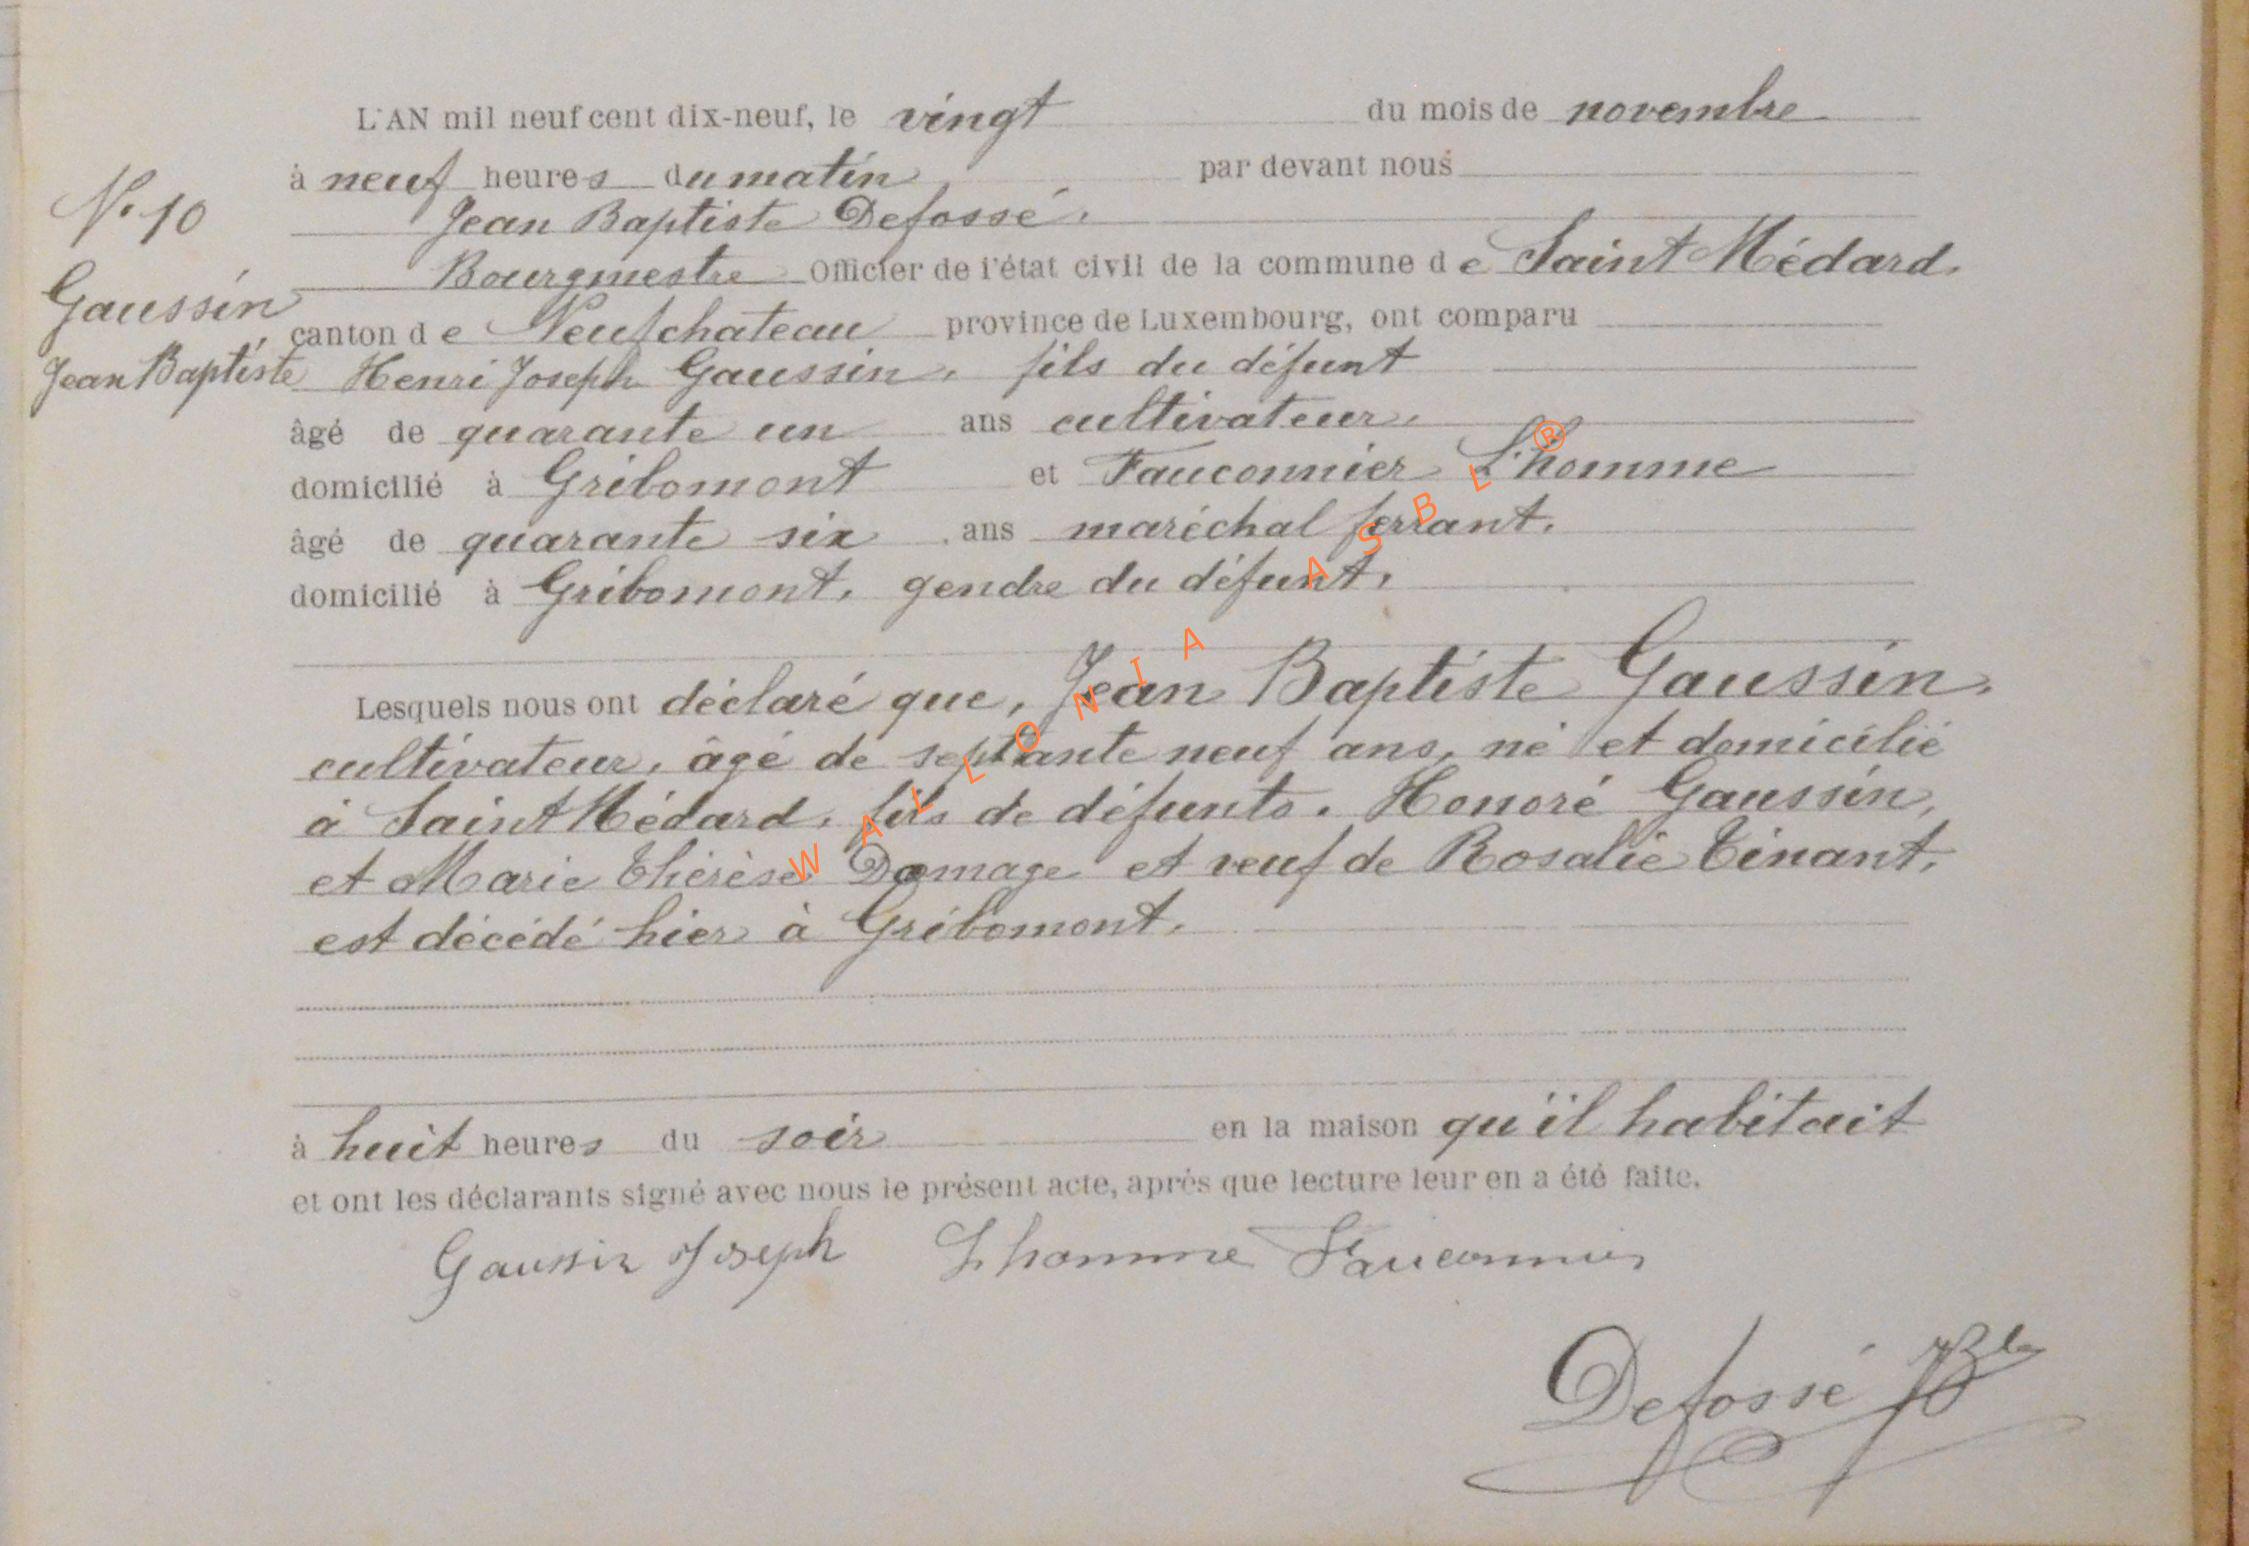 L'AN mil neuf cent dix-neuf, le vingt du mois de novembre
à neuf heures du matin par devant nous
N° 10
Jean Baptiste Defossé.
Bourgmestre Officier de l'état civil de la commune de Saint Médard.
Gaussin
canton de Neufchateau province de Luxembourg, ont comparu
Jean Baptiste
Henri Joseph Gaussin, fils du défunt
âgé de quarante un ans cultivateur.
domicilié à Gribomont et Fauconnier L'homme
âgé de quarante six ans maréchal ferrant.
domicilié à Gribomont, gendre du défunt.
Lesquels nous ont déclaré que, Jean Baptiste Gaussin.
cultivateur, âgé de septante neuf ans, né et domicilié
à Saint Médard, fils de défunts. Honoré Gaussin,
et Marie Thérèse Domage et veuf de Rosalie Tinant,
est décédé hier à Gribomont.
à huit heures du soir en la maison qu'il habitait
et ont les déclarants signé avec nous le présent acte, après que lecture leur en a été faite.
Gaussin Joseph Lhomme Fauconnier
Defossé JBte
WALLONIA ASBL ®